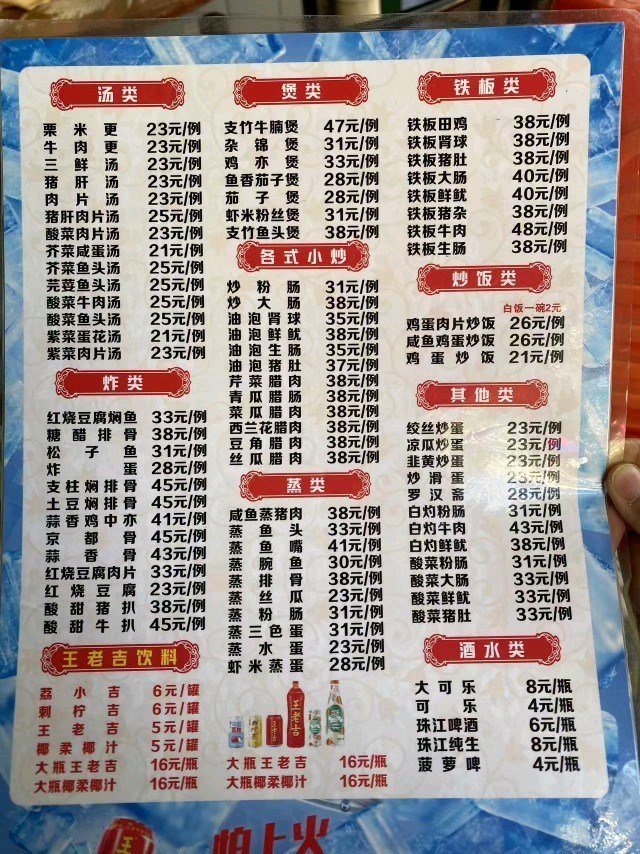 汤类
栗米更 23元/例
牛肉更 23元/例
三鲜汤 23元/例
猪肝汤 23元/例
肉片汤 23元/例
猪肝肉片汤 25元/例
酸菜肉片汤 23元/例
芥菜咸蛋汤 21元/例
芥菜鱼头汤 25元/例
芫荽鱼头汤 25元/例
酸菜牛肉汤 25元/例
酸菜鱼头汤 25元/例
紫菜蛋花汤 21元/例
紫菜肉片汤 23元/例
炸类
红烧豆腐焖鱼 33元/例
糖醋排骨 38元/例
松子鱼 31元/例
炸蛋 28元/例
支柱焖排骨 45元/例
土豆焖排骨 45元/例
蒜香鸡中亦 41元/例
京都骨 45元/例
蒜香骨 43元/例
红烧豆腐肉片 33元/例
红烧豆腐 23元/例
酸甜猪扒 38元/例
酸甜牛扒 45元/例
王老吉饮料
荔小吉 6元/罐
刺柠吉 6元/罐
王老吉 5元/罐
椰柔椰汁 5元/罐
大瓶王老吉 16元/瓶
大瓶椰柔椰汁 16元/瓶
煲类
支竹牛腩煲 47元/例
杂锦煲 31元/例
鸡亦煲 33元/例
鱼香茄子煲 28元/例
茄子煲 28元/例
虾米粉丝煲 31元/例
支竹鱼头煲 38元/例
各式小炒
炒粉肠 31元/例
炒大肠 38元/例
油泡肾球 35元/例
油泡鲜鱿 38元/例
油泡生肠 35元/例
油泡猪肚 37元/例
芹菜腊肉 38元/例
青瓜腊肠 38元/例
菜瓜腊肉 38元/例
西兰花腊肉 38元/例
豆角腊肉 38元/例
丝瓜腊肉 38元/例
蒸类
咸鱼蒸猪肉 38元/例
蒸鱼头 33元/例
蒸鱼嘴 41元/例
蒸腕鱼 30元/例
蒸排骨 38元/例
蒸丝瓜 23元/例
蒸粉肠 31元/例
蒸三色蛋 31元/例
蒸水蛋 23元/例
虾米蒸蛋 28元/例
王老吉
大瓶王老吉 16元/瓶
大瓶椰柔椰汁 16元/瓶
铁板类
铁板田鸡 38元/例
铁板肾球 38元/例
铁板猪肚 38元/例
铁板大肠 40元/例
铁板鲜鱿 40元/例
铁板猪杂 38元/例
铁板牛肉 48元/例
铁板生肠 38元/例
炒饭类
白饭一碗2元
鸡蛋肉片炒饭 26元/例
咸鱼鸡蛋炒饭 26元/例
鸡蛋炒饭 21元/例
其他类
绞丝炒蛋 23元/例
凉瓜炒蛋 23元/例
韭黄炒蛋 23元/例
炒滑蛋 23元/例
罗汉斋 28元/例
白灼粉肠 31元/例
白灼牛肉 43元/例
白灼鲜鱿 38元/例
酸菜粉肠 31元/例
酸菜大肠 33元/例
酸菜鲜鱿 33元/例
酸菜猪肚 33元/例
酒水类
大可乐 8元/瓶
可乐 4元/瓶
珠江啤酒 6元/瓶
珠江纯生 8元/瓶
菠萝啤 4元/瓶
怕上火